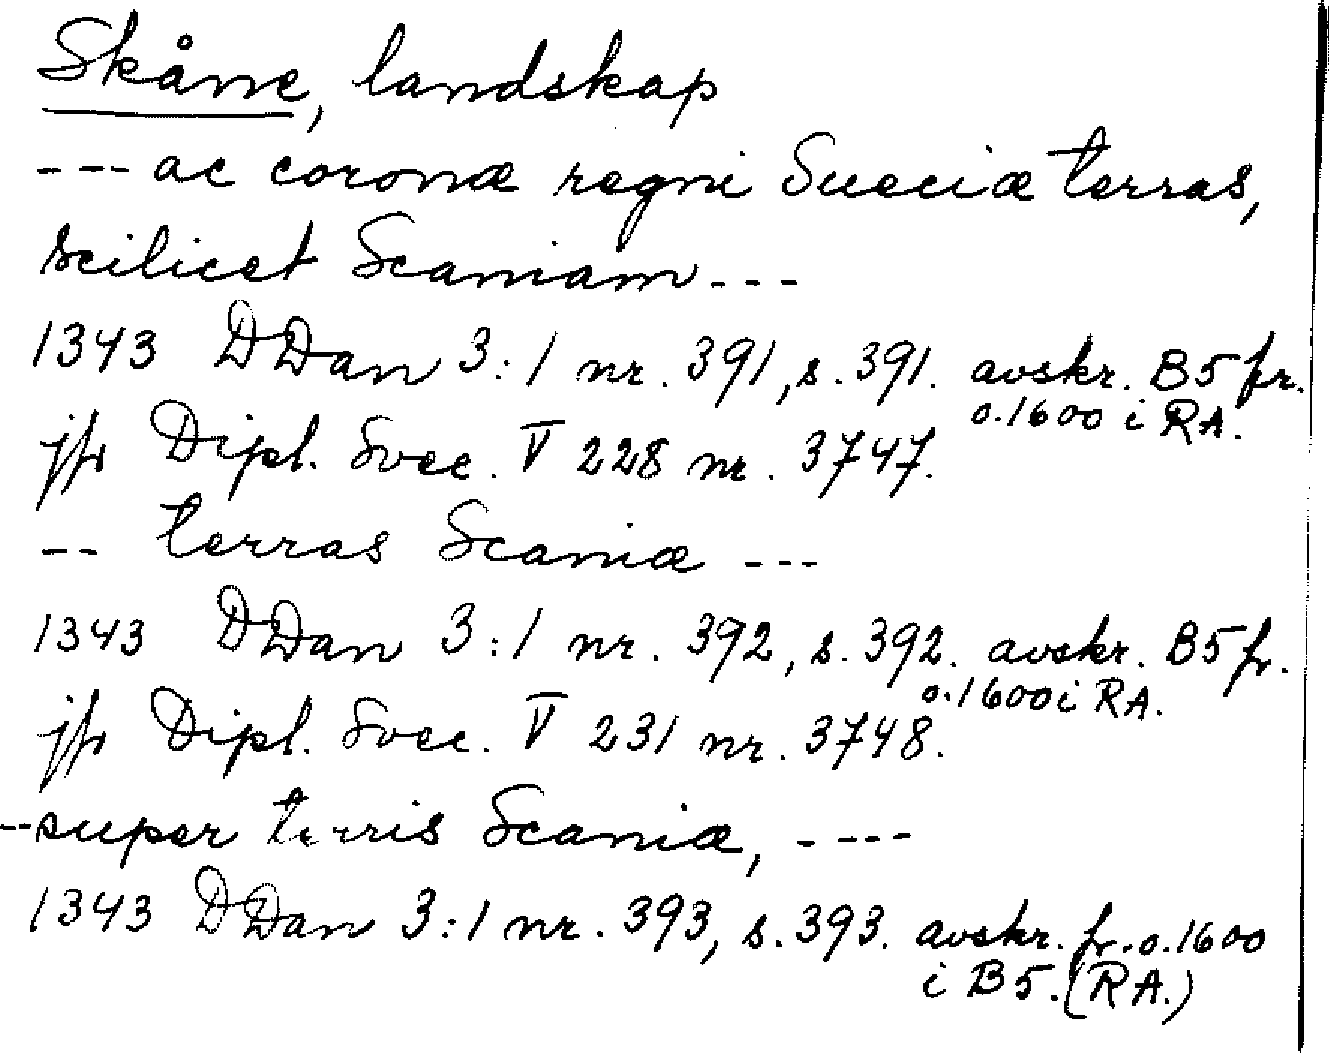 Skåne, landskap
--- ac coronæ regni Sueciæ terras,
scilicet Scaniam ---
1343 DDan 3:1 nr. 391, s. 391. avskr. B5 fr.
o. 1600 i RA.
jfr Dipl. Svec. V 228 nr. 3747.
-- terras Scaniæ ---
1343 DDan 3:1 nr. 392, s. 392. avskr. B5 fr.
o. 1600 i RA.
jfr Dipl. Svec. V 231 nr. 3748.
-- super terris Scaniæ, ----
1343 DDan 3:1 nr. 393, s. 393. avskr. fr. o. 1600
i B5. (RA.)